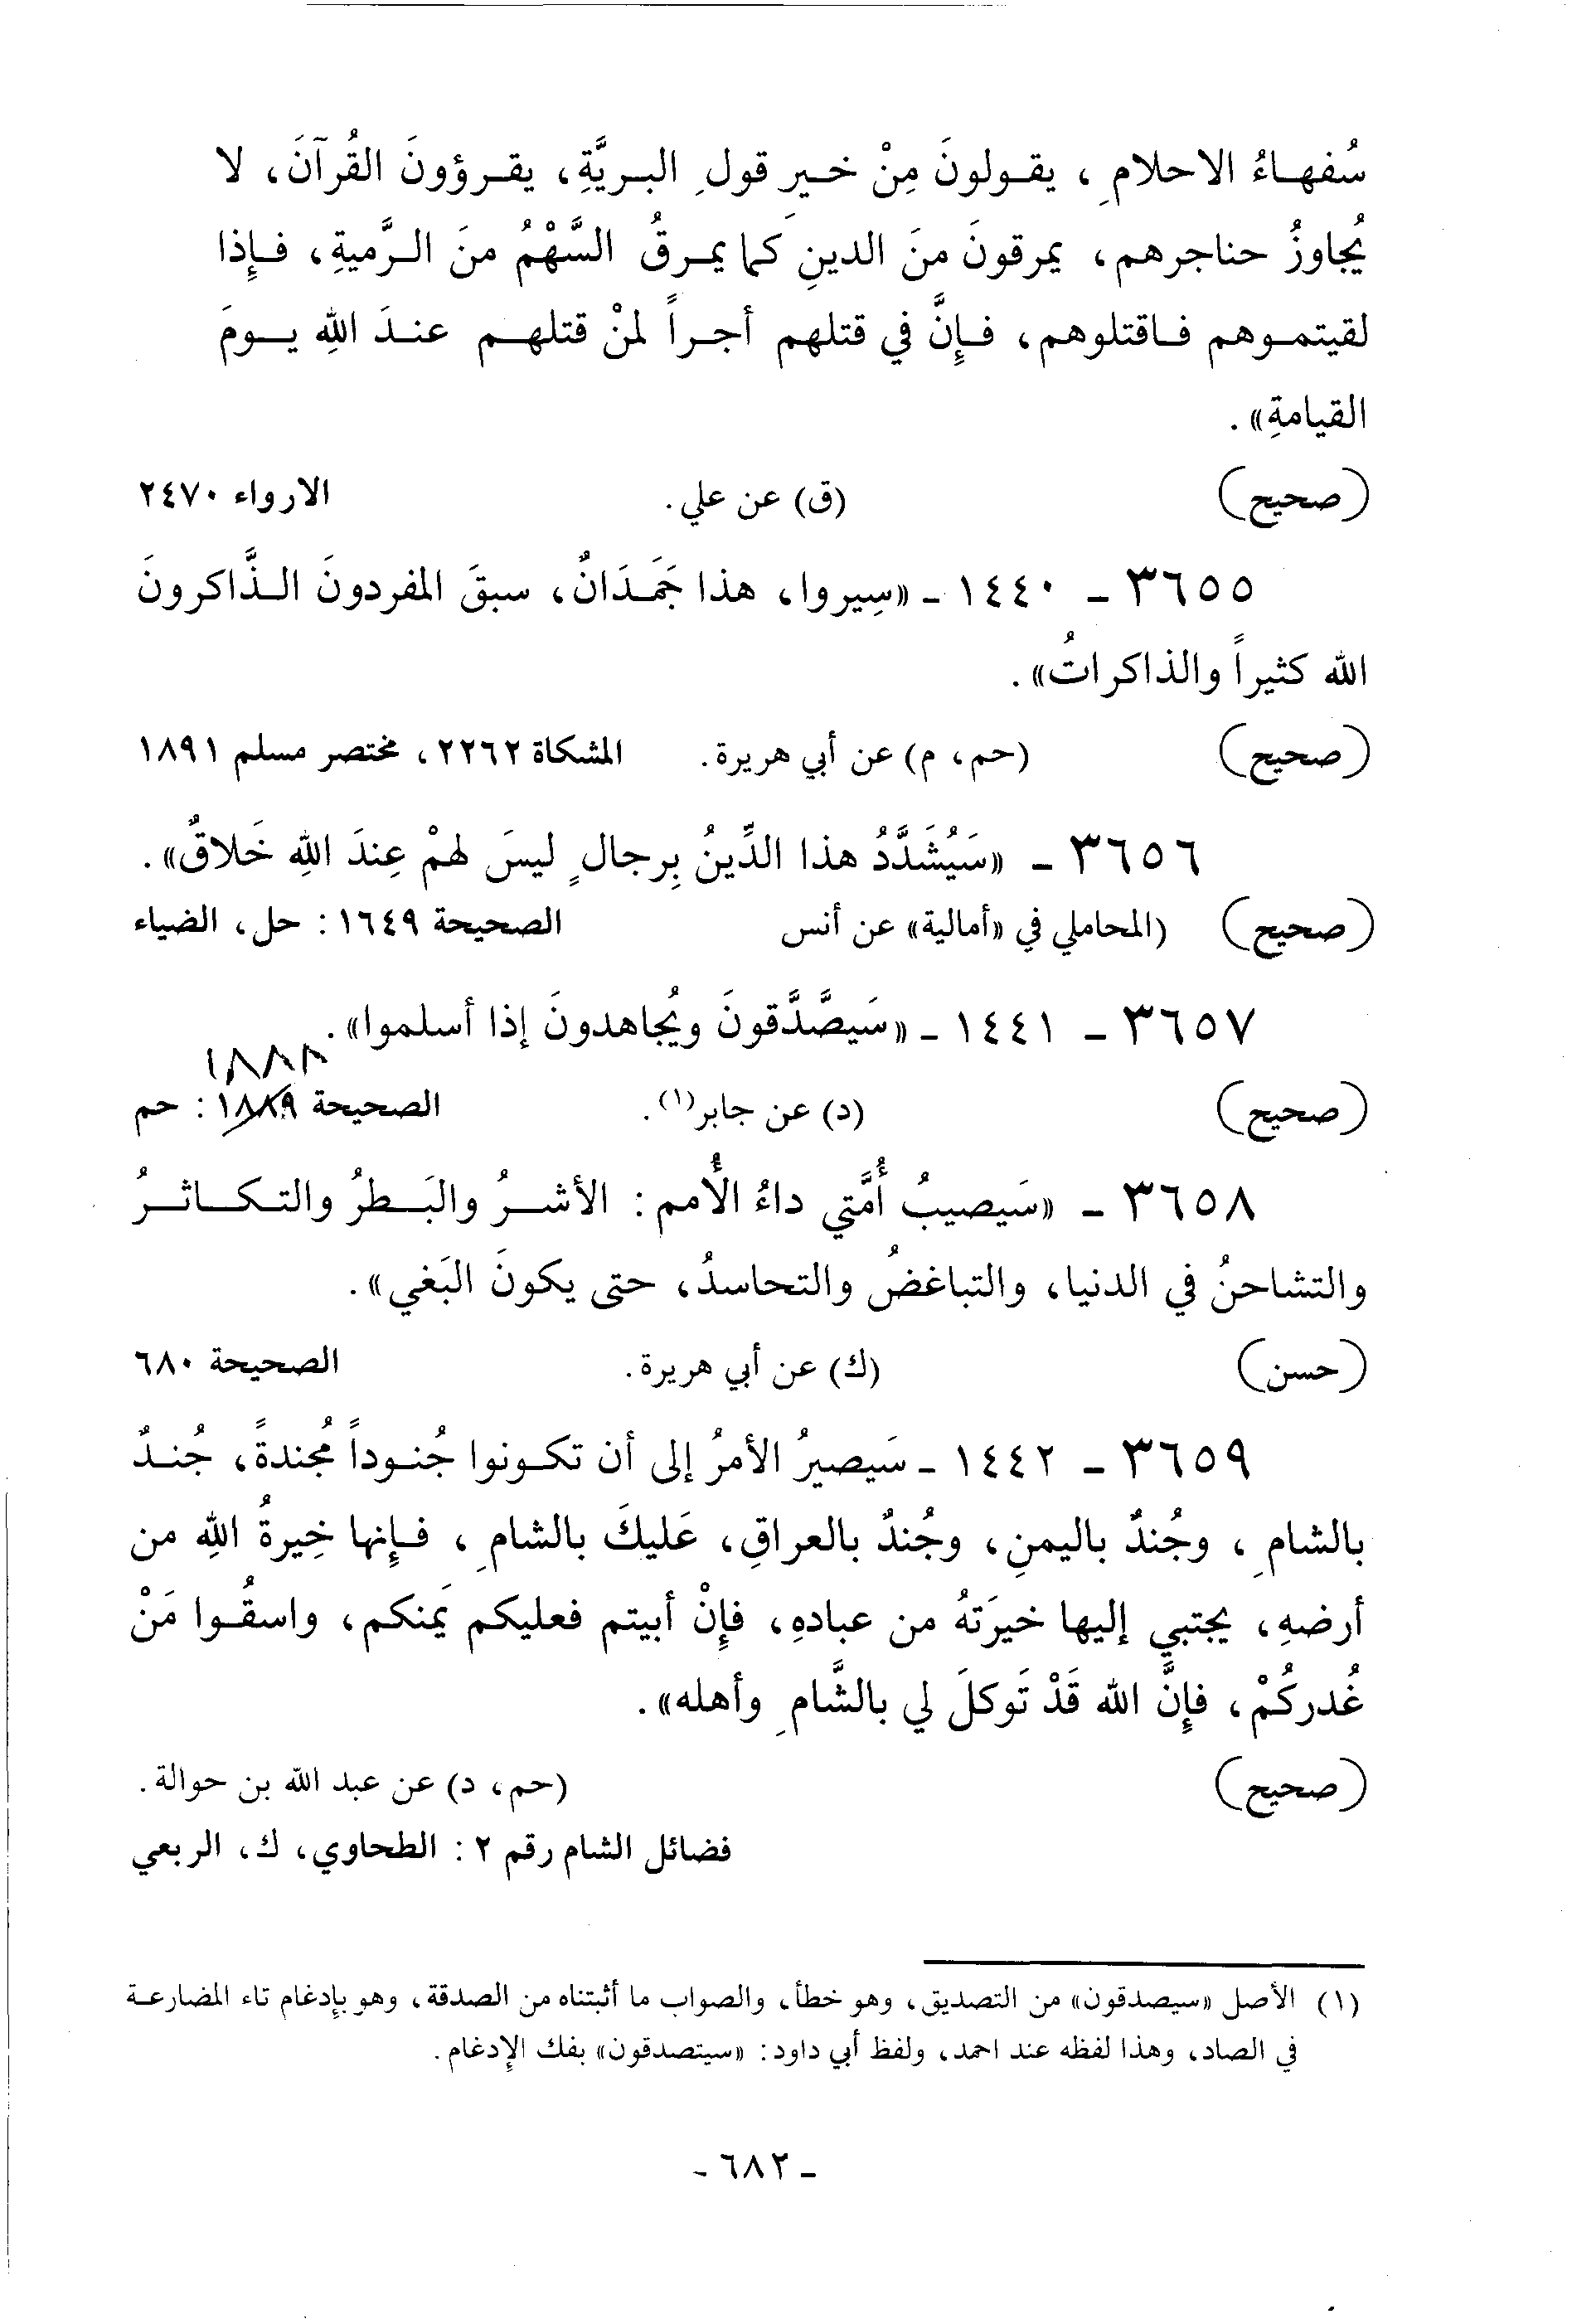 سُفهـاءُ الاحلامِ، يقـولونَ مِنْ خـيرِ قولِ البـريَّةِ، يقـرؤونَ القُرآنَ، لا
يُجاوزُ حناجرهم، يمرقونَ منَ الدينِ كَما يمـرقُ السَّهْمُ منَ الـرَّميةِ، فـإِذا
لقيتمـوهم فـاقتلوهم، فـإِنَّ في قتلهم أجـراً لمنْ قتلهـم عنـدَ اللهِ يـومَ
القيامةِ».
(صحيح) (ق) عن علي. الارواء ٢٤٧٠
٣٦٥٥ - ١٤٤٠ - «سِيروا، هذا جَمَـدَانٌ، سبقَ المفردونَ الـذَّاكرونَ
الله كثيراً والذاكراتُ».
(صحيح) (حم، م) عن أبي هريرة. المشكاة ٢٢٦٢، مختصر مسلم ١٨٩١
٣٦٥٦ - «سَيُشَدَّدُ هذا الدِّينُ بِرجالٍ ليسَ لهمْ عِندَ اللهِ خَلاقٌ».
(صحيح) (المحاملي في «أمالية» عن أنس الصحيحة ١٦٤٩: حل، الضياء
٣٦٥٧ - ١٤٤١ - «سَيصَّدَّقونَ ويُجاهدونَ إذا أسلموا».
١٨٨٨
(صحيح) (د) عن جابر(١). الصحيحة ١٨٨٩: حم
٣٦٥٨ - «سَيصيبُ أُمَّتي داءُ الأُمم: الأشـرُ والبَـطرُ والتكـاثـرُ
والتشاحنُ في الدنيا، والتباغضُ والتحاسدُ، حتى يكونَ البَغي».
(حسن) (ك) عن أبي هريرة. الصحيحة ٦٨٠
٣٦٥٩ - ١٤٤٢ - سَيصيرُ الأمرُ إلى أن تكـونوا جُنـوداً مُجندةً، جُنـدٌ
بالشامِ، وجُندٌ باليمنِ، وجُندٌ بالعراقِ، عَليكَ بالشامِ، فـإِنها خِيرةُ اللهِ من
أرضهِ، يجتبي إليها خيرَتهُ من عبادهِ، فإِنْ أبيتم فعليكم يَمنكم، واسقُـوا مَنْ
غُدركُمْ، فإِنَّ الله قَدْ تَوكلَ لي بالشَّامِ وأهله».
(صحيح) (حم، د) عن عبد الله بن حوالة.
فضائل الشام رقم ٢: الطحاوي، ك، الربعي
(١) الأصل «سيصدقون» من التصديق، وهو خطأ، والصواب ما أثبتناه من الصدقة، وهو بإدغام تاء المضارعـة
في الصاد، وهذا لفظه عند احمد، ولفظ أبي داود: «سيتصدقون» بفك الإدغام.
- ٦٨٢ -